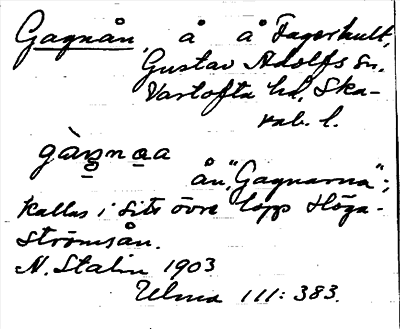 Gagnån, å å Fagerhult,
Gustav Adolfs sn.
Vartofta hd, Ska-
rab. l.
gàŋnaa
ån, "Gagnarna";
Kallas i sitt övre lopp Höga-
strömsån.
N. Stalin 1903
Ulma 111:383.